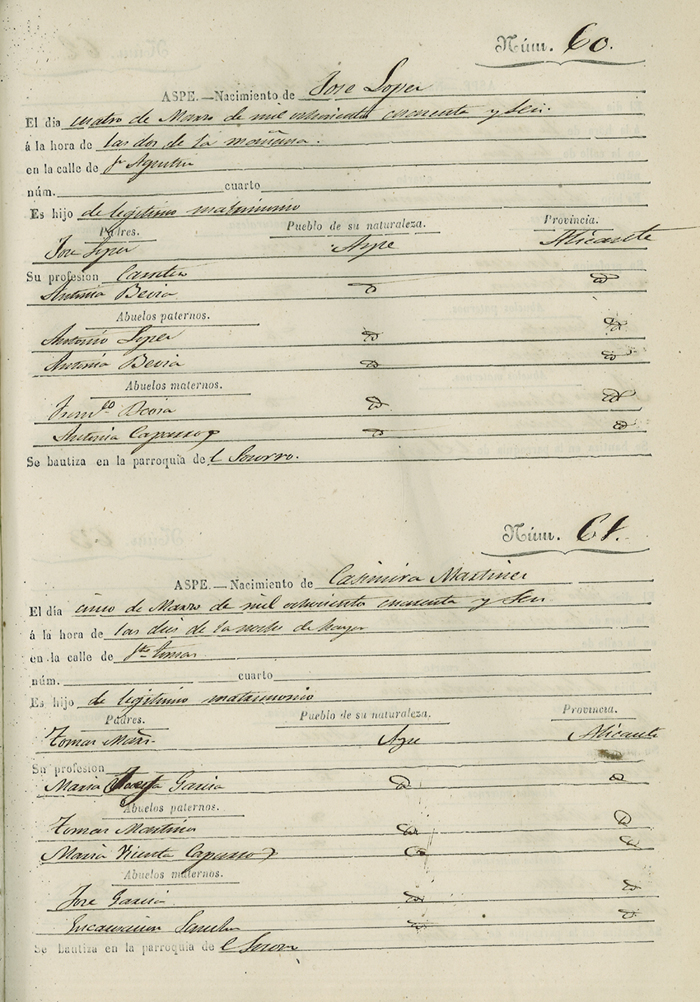 Núm. 60.
ASPE.—Nacimiento de Jose Loper
El día cuatro de Marzo de mil ochocientos cuarenta y seis.
á la hora de las dos de la mañana.
en la calle de Sn Agustin
núm. cuarto
Es hijo de legitimo matrimonio
Padres. Pueblo de su naturaleza. Provincia.
Jose Loper Aspe Alicante
Su profesion
Antonia Beviá
Abuelos paternos.
Antonio Loper
Antonia Beviá
Abuelos maternos.
Franco Beviá
Antonia Caparros
Se bautiza en la parroquia de l Socorro.
Núm. 61.
ASPE.—Nacimiento de Casimira Martinez
El día cinco de Marzo de mil ochocientos cuarenta y seis
á la hora de las dies de la noche de
en la calle de Sto Tomas
núm. cuarto
Es hijo de legitimo matrimonio
Padres. Pueblo de su naturaleza. Provincia.
Tomas Aspe Alicante
Su profesion
Maria Josefa Garcia
Abuelos paternos.
Tomas Martinez
Maria Vicenta Caparros
Abuelos maternos.
Jose Garcia
Encarnacion Sanchez
Se bautiza en la parroquia de l Socorro